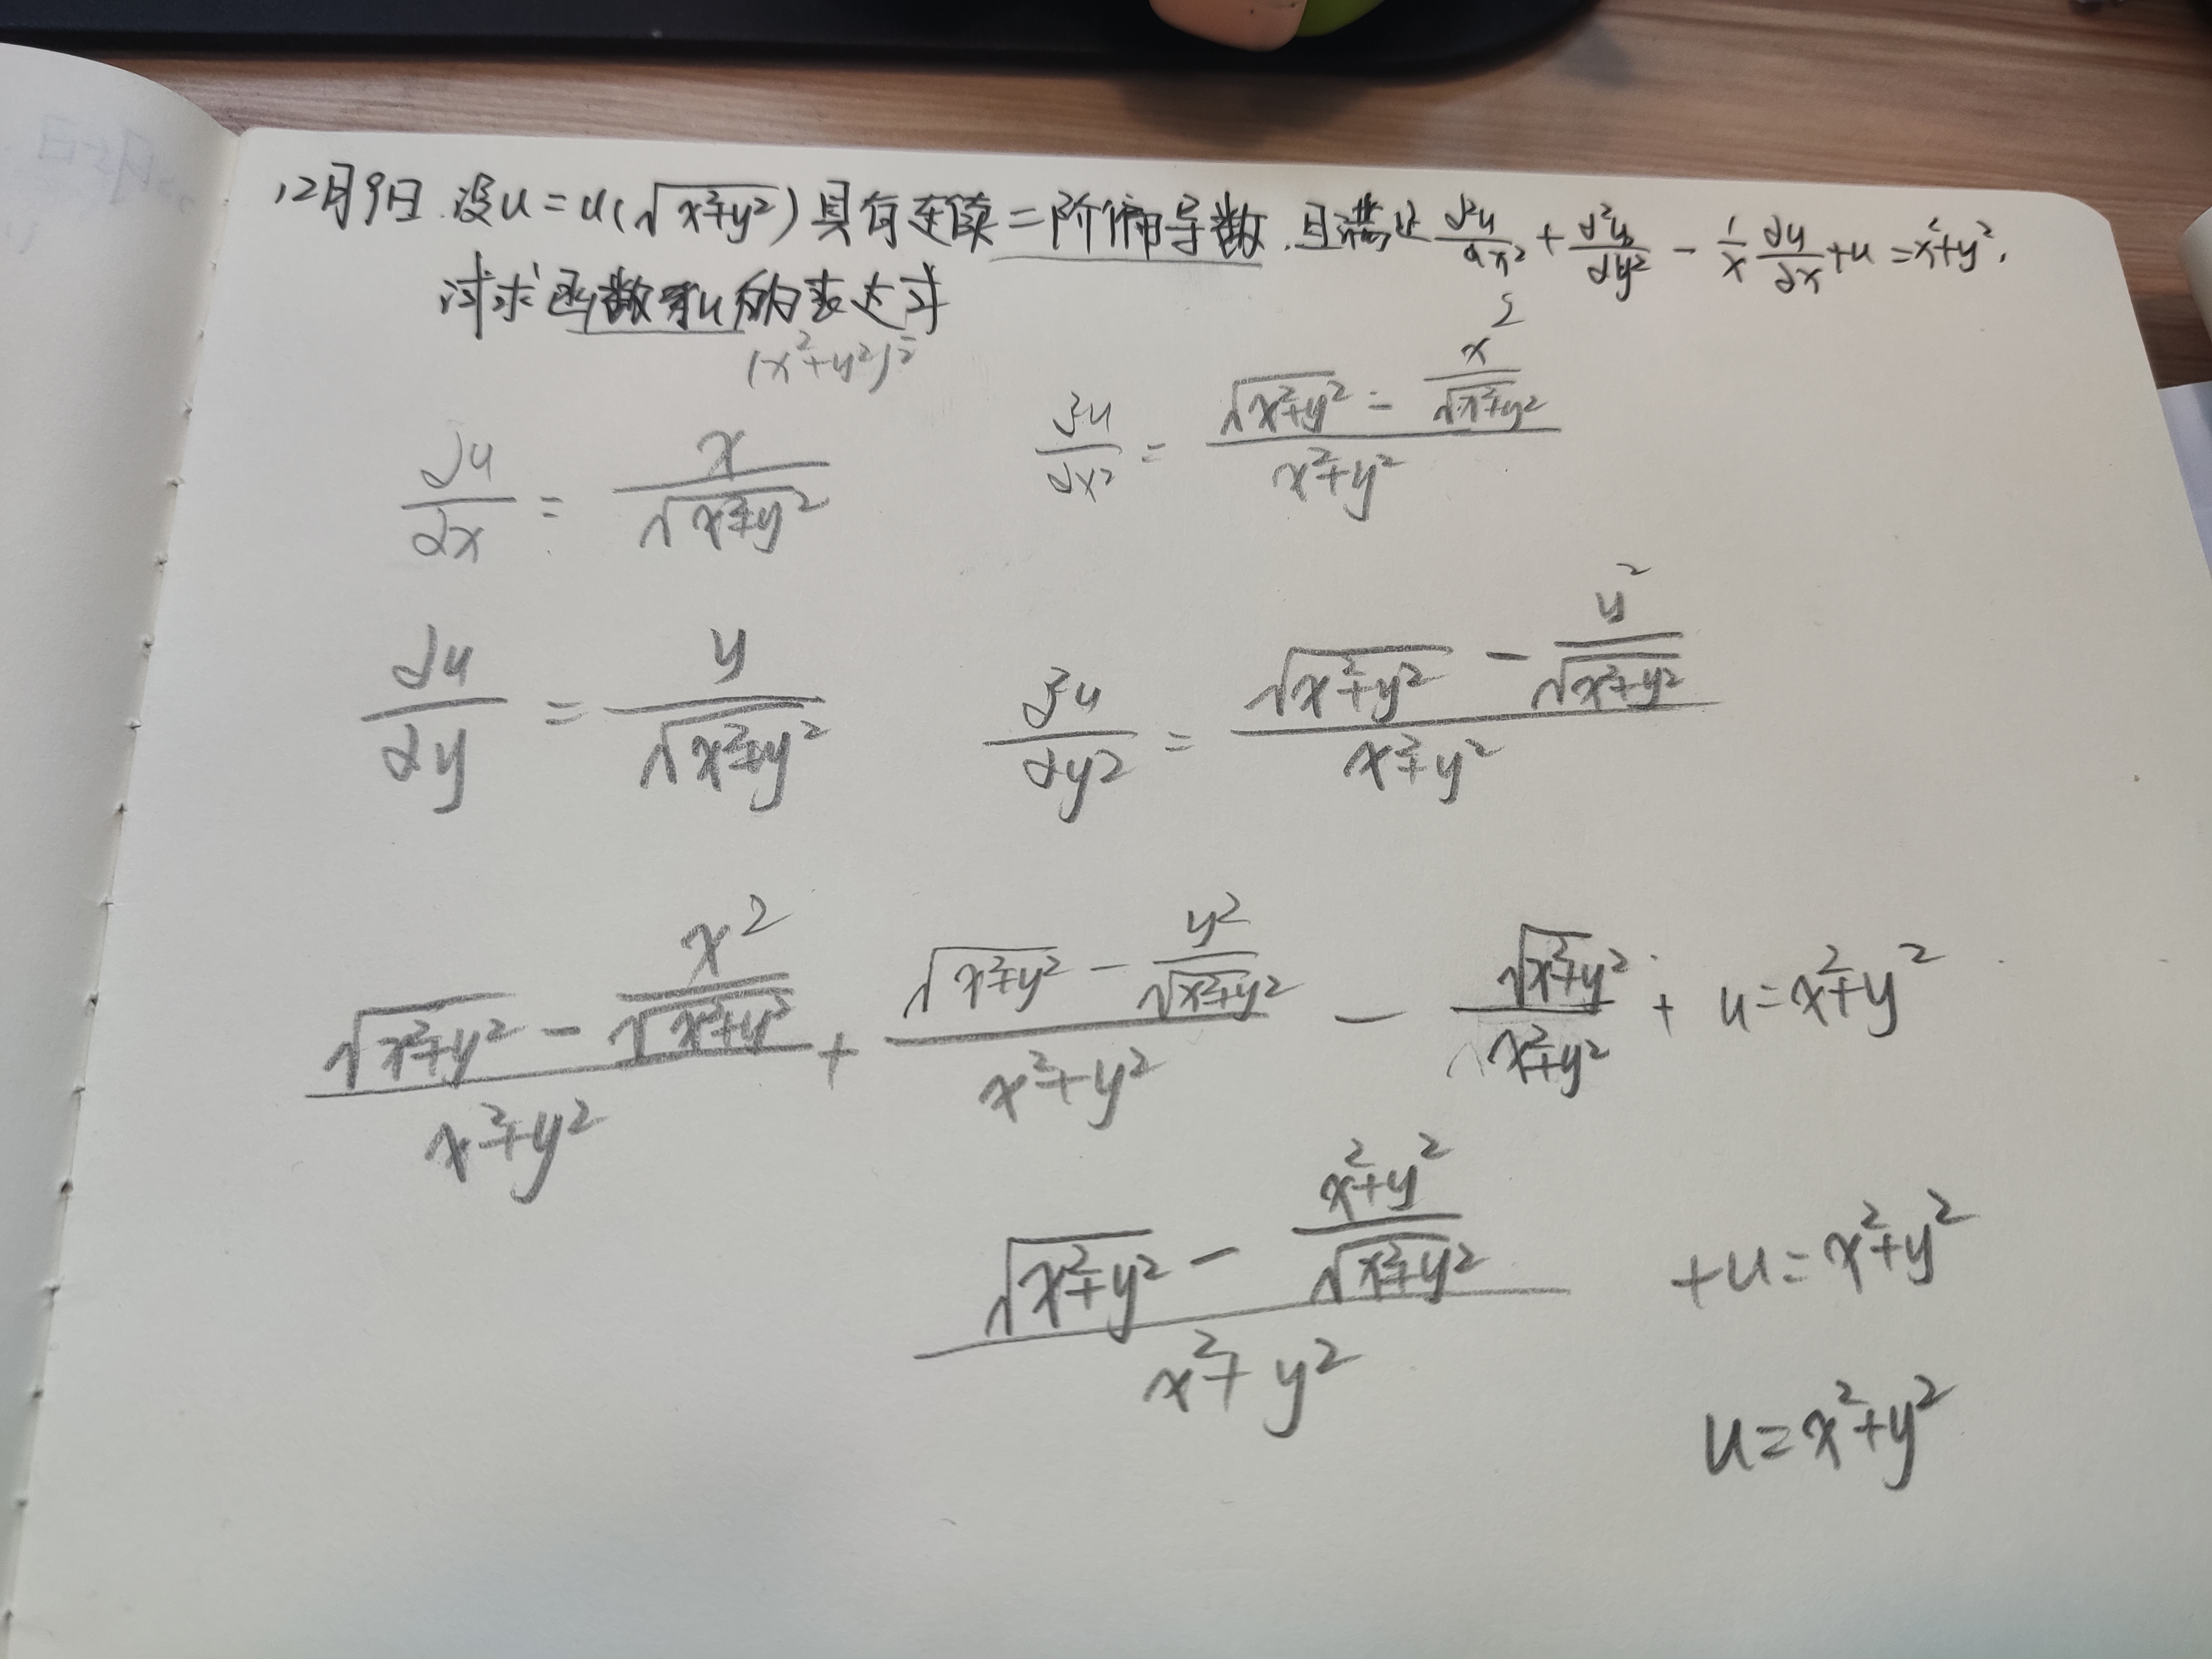 12月9日.设u=u(√(x²+y²))具有连续二阶偏导数.且满足 ∂²u/∂x² + ∂²u/∂y² - 1/x ∂u/∂x + u = x²+y².
试求函数u的表达式
(x²+y²)²
∂u/∂x = x/√(x²+y²)    ∂²u/∂x² = (√(x²+y²) - x²/√(x²+y²))/(x²+y²)
∂u/∂y = y/√(x²+y²)    ∂²u/∂y² = (√(x²+y²) - y²/√(x²+y²))/(x²+y²)
(√(x²+y²) - x²/√(x²+y²))/(x²+y²) + (√(x²+y²) - y²/√(x²+y²))/(x²+y²) - √(x²+y²)/(x²+y²) + u = x²+y²
(√(x²+y²) - (x²+y²)/√(x²+y²))/(x²+y²) + u = x²+y²
u = x²+y²